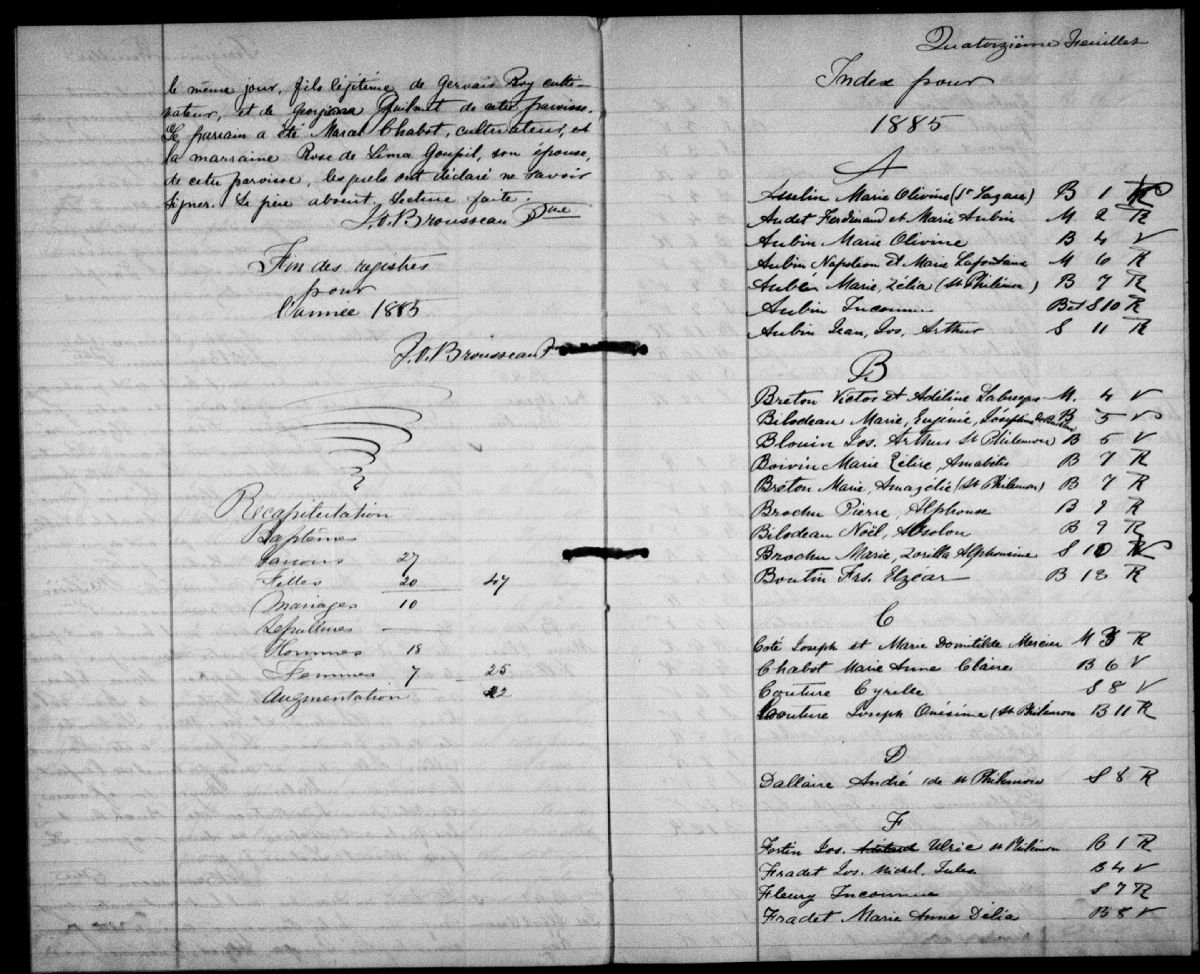 le même jour, fils légitime de Gervais Roy culti-
vateur, et de Georgiana Guilmet de cette paroisse.
Le parrain a été Marcel Chabot, cultivateur, et
la marraine Rose de Lima Goupil, son épouse,
de cette paroisse, lesquels ont déclaré ne savoir
signer. Le père absent. Lecture faite.
J.O. Brousseau Ptre
Fin des registres
pour
l'année 1885
J.O. Brousseau
Recapitulation
Baptêmes
Garçons 27
Filles 20 47
Mariages 10
Sepultures —
Hommes 18
Femmes 7 25
Augmentation 22
Quatorzième Feuillet
Index pour
1885
A
Aubin Marie Olivine (St Lazare) B 1 R
Audet Ferdinand et Marie Aubin M 2 R
Aubin Marie Olivine B 4 V
Aubin Napoleon et Marie Lafontaine M 6 R
Aubin Marie, Zélia (St Philémon) B 7 R
Aubin Inconnu B et S 10 R
Aubin Jean, Jos, Arthur S 11 R
B
Breton Victor et Adéline Labrecque M. 4 V
Bilodeau Marie, Eugénie, Joséphine B 5 V
Blouin Jos. Arthur St Philemon B 5 V
Boivin Marie Zélire, Annabélie B 7 R
Breton Marie, Amazélie (St Philemon) B 7 R
Brochu Pierre, Alphonse B 9 R
Bilodeau Noël, Absolon B 9 R
Brochu Marie, Zorilla Alphonsine S 10 V
Boutin Frs. Elzéar B 13 R
C
Coté Joseph et Marie Domitilde Mercier M 3 R
Chabot Marie Anne Claire B 6 V
Couture Cyrille S 8 V
Couture Joseph Onésime (St Philémon B 11 R
D
Dallaire André (de St Philémon S 8 R
F
Fortin Jos. Ulric St Philémon B 1 R
Fradet Jos. Michel, Jules B 4 V
Fleury Inconnue S 7 R
Fradet Marie Anne Délia B 8 V